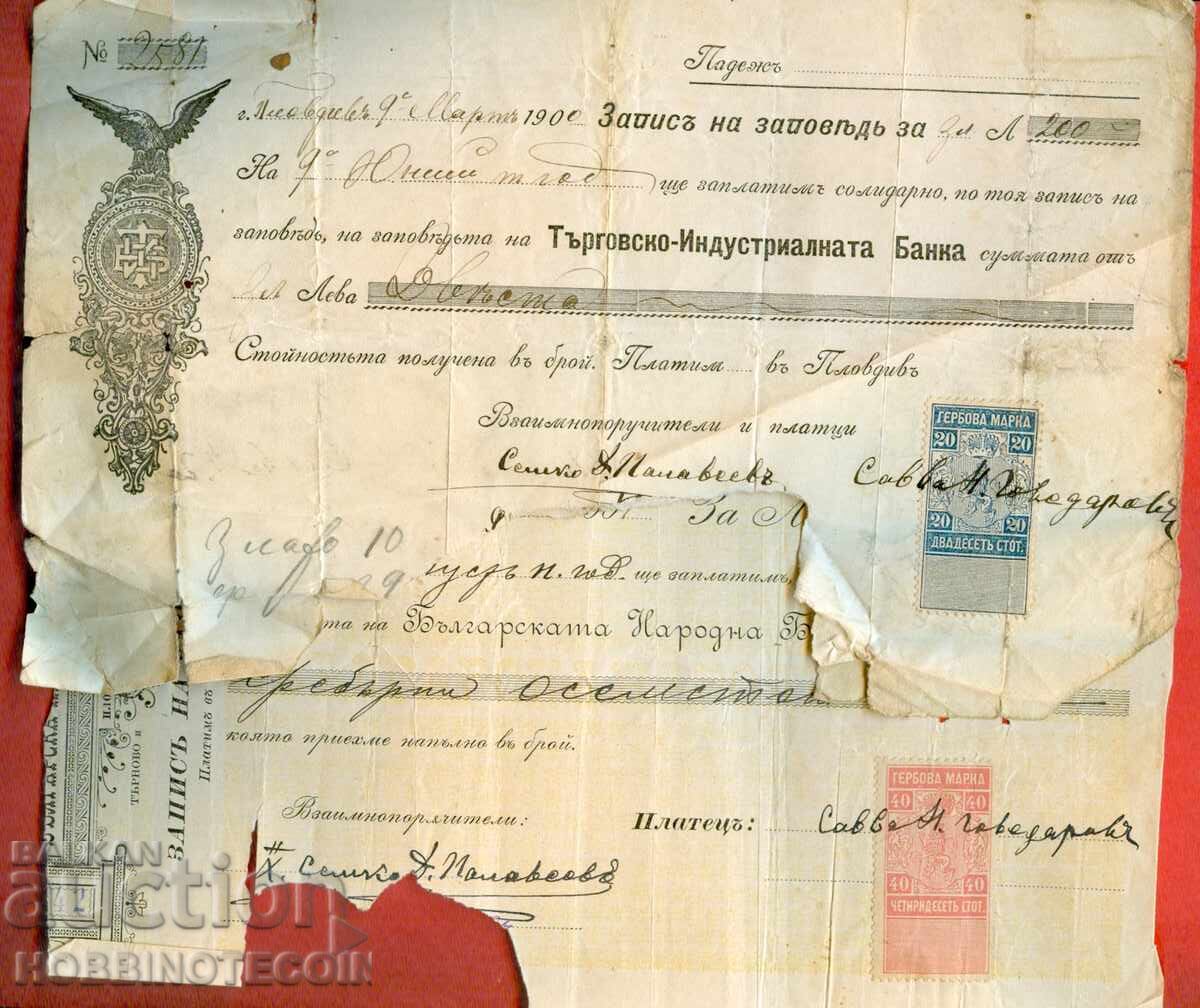 № 2581
Падежъ
г. Пловдивъ 9й Мартъ 1900 Записъ на заповѣдь за зл Л 200
На 9й Юний т. год ще заплатимъ солидарно, по тоя записъ на
заповѣдь, на заповѣдьта на Търговско-Индустриалната Банка суммата отъ
зл Лева Двѣста
Стойностьта получена въ брой. Платим въ Пловдивъ
Взаимнопоручители и платци
Семко Д. Палавеевъ Савва Н. Говедаровъ
ГЕРБОВА МАРКА
20 20
20 20
ДВАДЕСЕТЬ СТОТ.
За Л
Злато 10
ср 19
густъ н. год. ще заплатимъ,
та на Българската Народна Б
сребърни осемстот
която приехме напълно въ брой.
Взаимнопорячители: Платецъ: Савва Н. Говедаровъ
Х. Семко Д. Палавеевъ
ГЕРБОВА МАРКА
40 40
40 40
ЧЕТИРИДЕСЕТЬ СТОТ.
ТЪРНОВО и
ЗАПИСЪ НА
Платимъ въ
42
BALKAN
auction
HOBBINOTECOIN